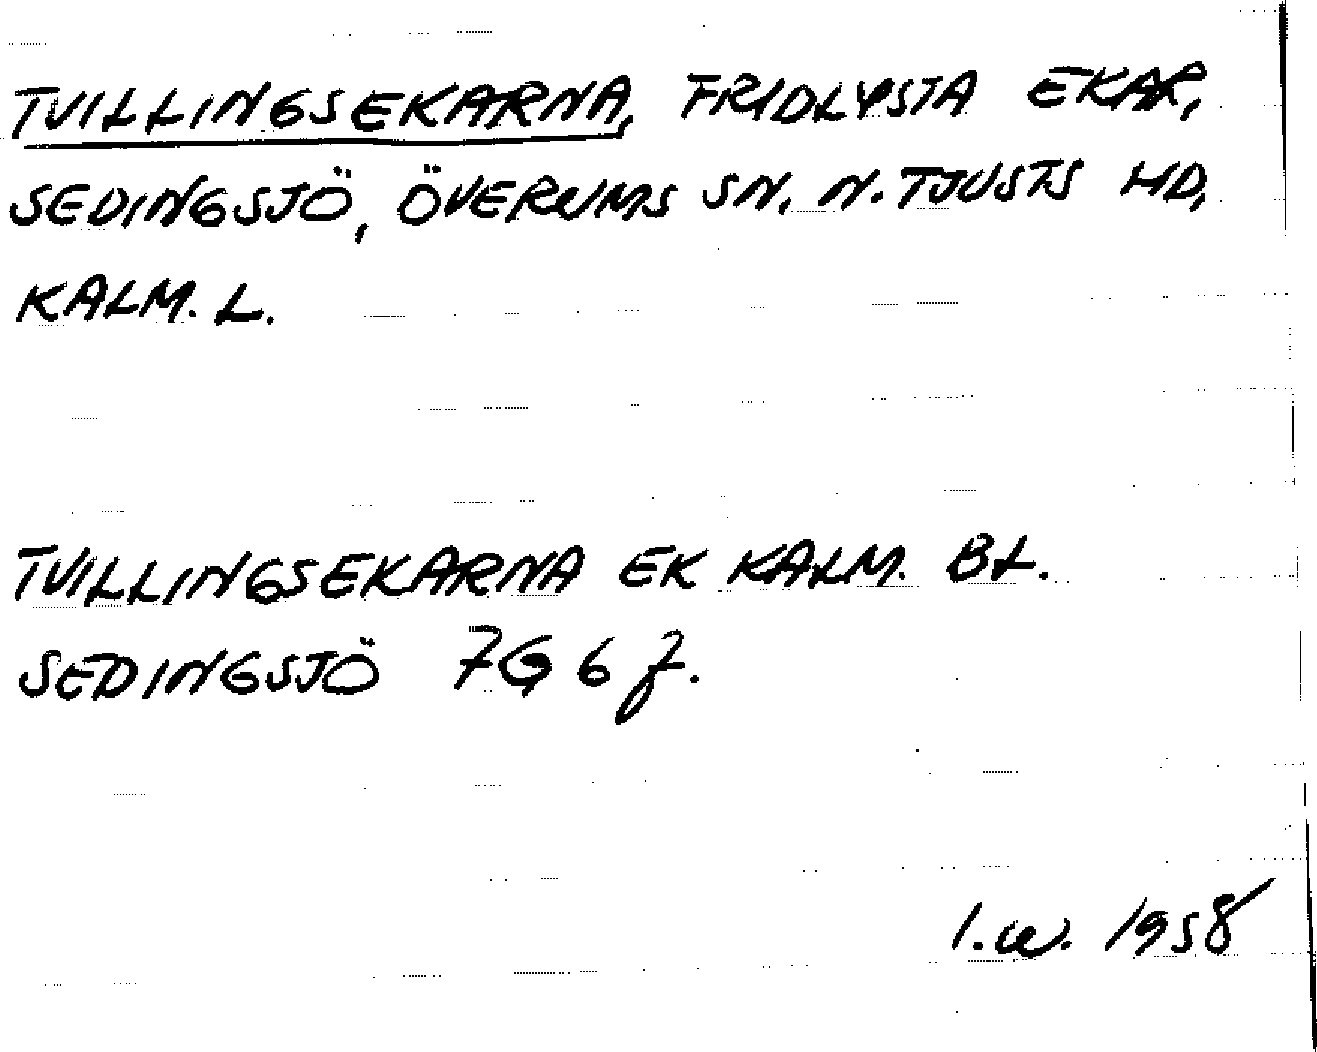 TVILLINGSEKARNA, FRIDLYSTA EKAR,
SEDINGSJÖ, ÖVERUMS SN. N. TJUSTS HD,
KALM. L.
TVILLINGSEKARNA EK KALM. BL.
SEDINGSJÖ 7G 6 f.
I.W. 1958